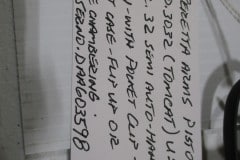 BERETTA ARMS PISTO
3032 (TOMCAT) U.
.32 SEMI AUTO-HAN
-WITH POCKET CLIP -
CASE-FLIP UP OR
CHAMBERING.
SERNO. DAA603598